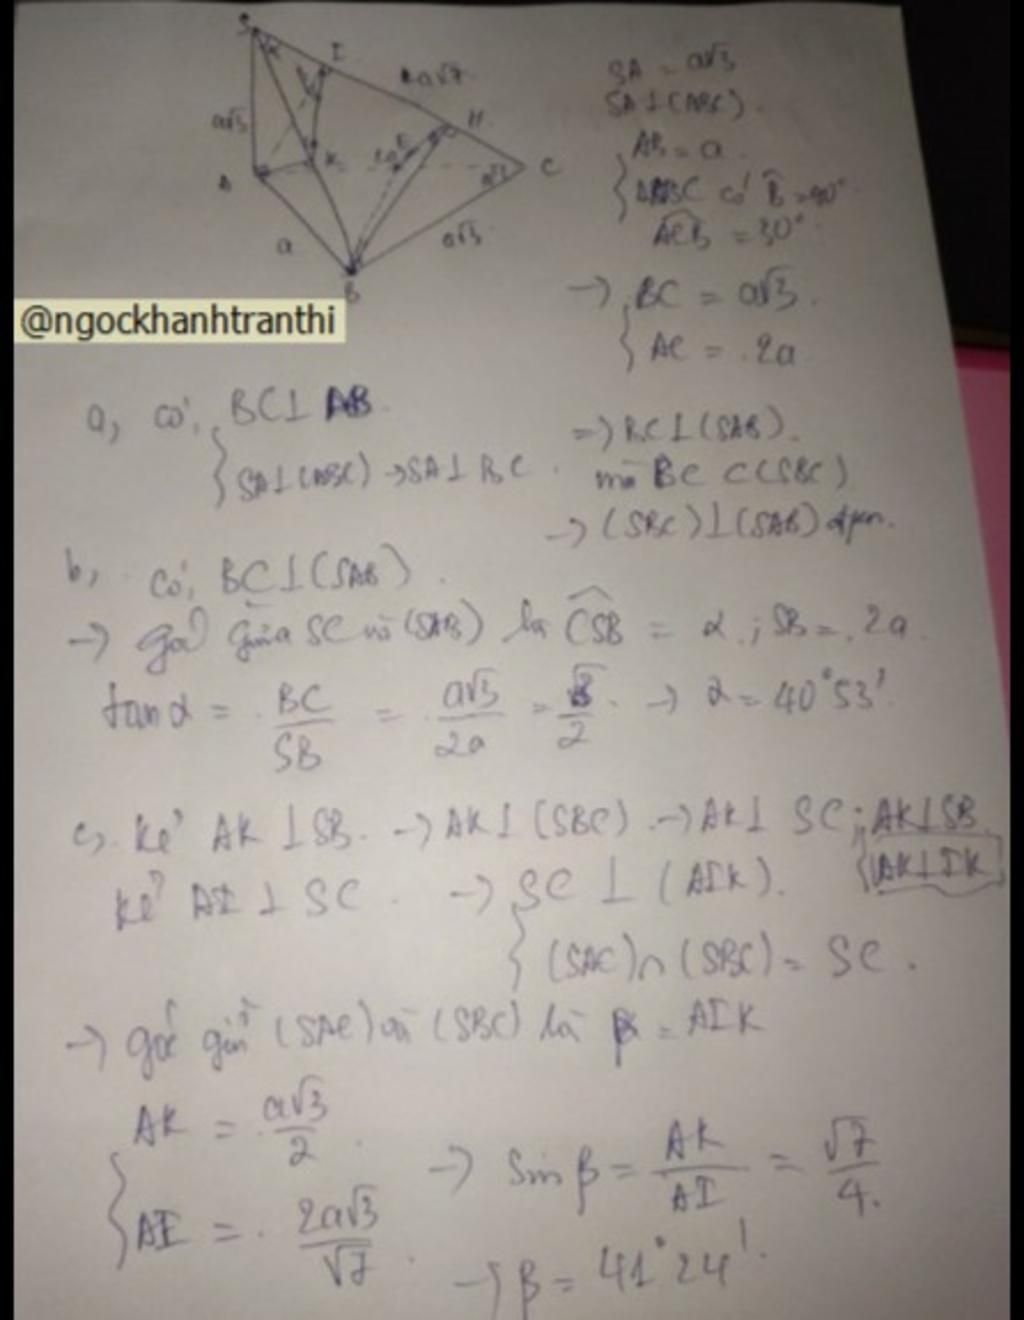 S
I
a√7
a√3
H
K
E
A
C
a
a√3
B
SA = a√3
SA ⊥ (ABC).
AB = a.
ΔABC có B̂ = 90°
ACB = 30°
→ BC = a√3.
AC = 2a
@ngockhanhtranthi
a, có, BC ⊥ AB.
SA ⊥ (ABC) → SA ⊥ BC.
=> BC ⊥ (SAB).
mà BC ⊂ (SBC)
→ (SBC) ⊥ (SAB) đpcm.
b, có, BC ⊥ (SAB).
→ góc giữa SC và (SAB) là CSB = α; SB = 2a.
tan α = BC/SB = a√3/2a = √3/2 → α = 40°53'.
c, kẻ AK ⊥ SB. → AK ⊥ (SBC) → AK ⊥ SC; AK ⊥ SB
AK ⊥ IK
kẻ AI ⊥ SC. → SC ⊥ (AIK).
(SAC) ∩ (SBC) = SC.
→ góc giữa (SAC) và (SBC) là β = AIK
AK = a√3/2.
AI = 2a√3/√7.
→ Sin β = AK/AI = √7/4.
→ β = 41°24'.